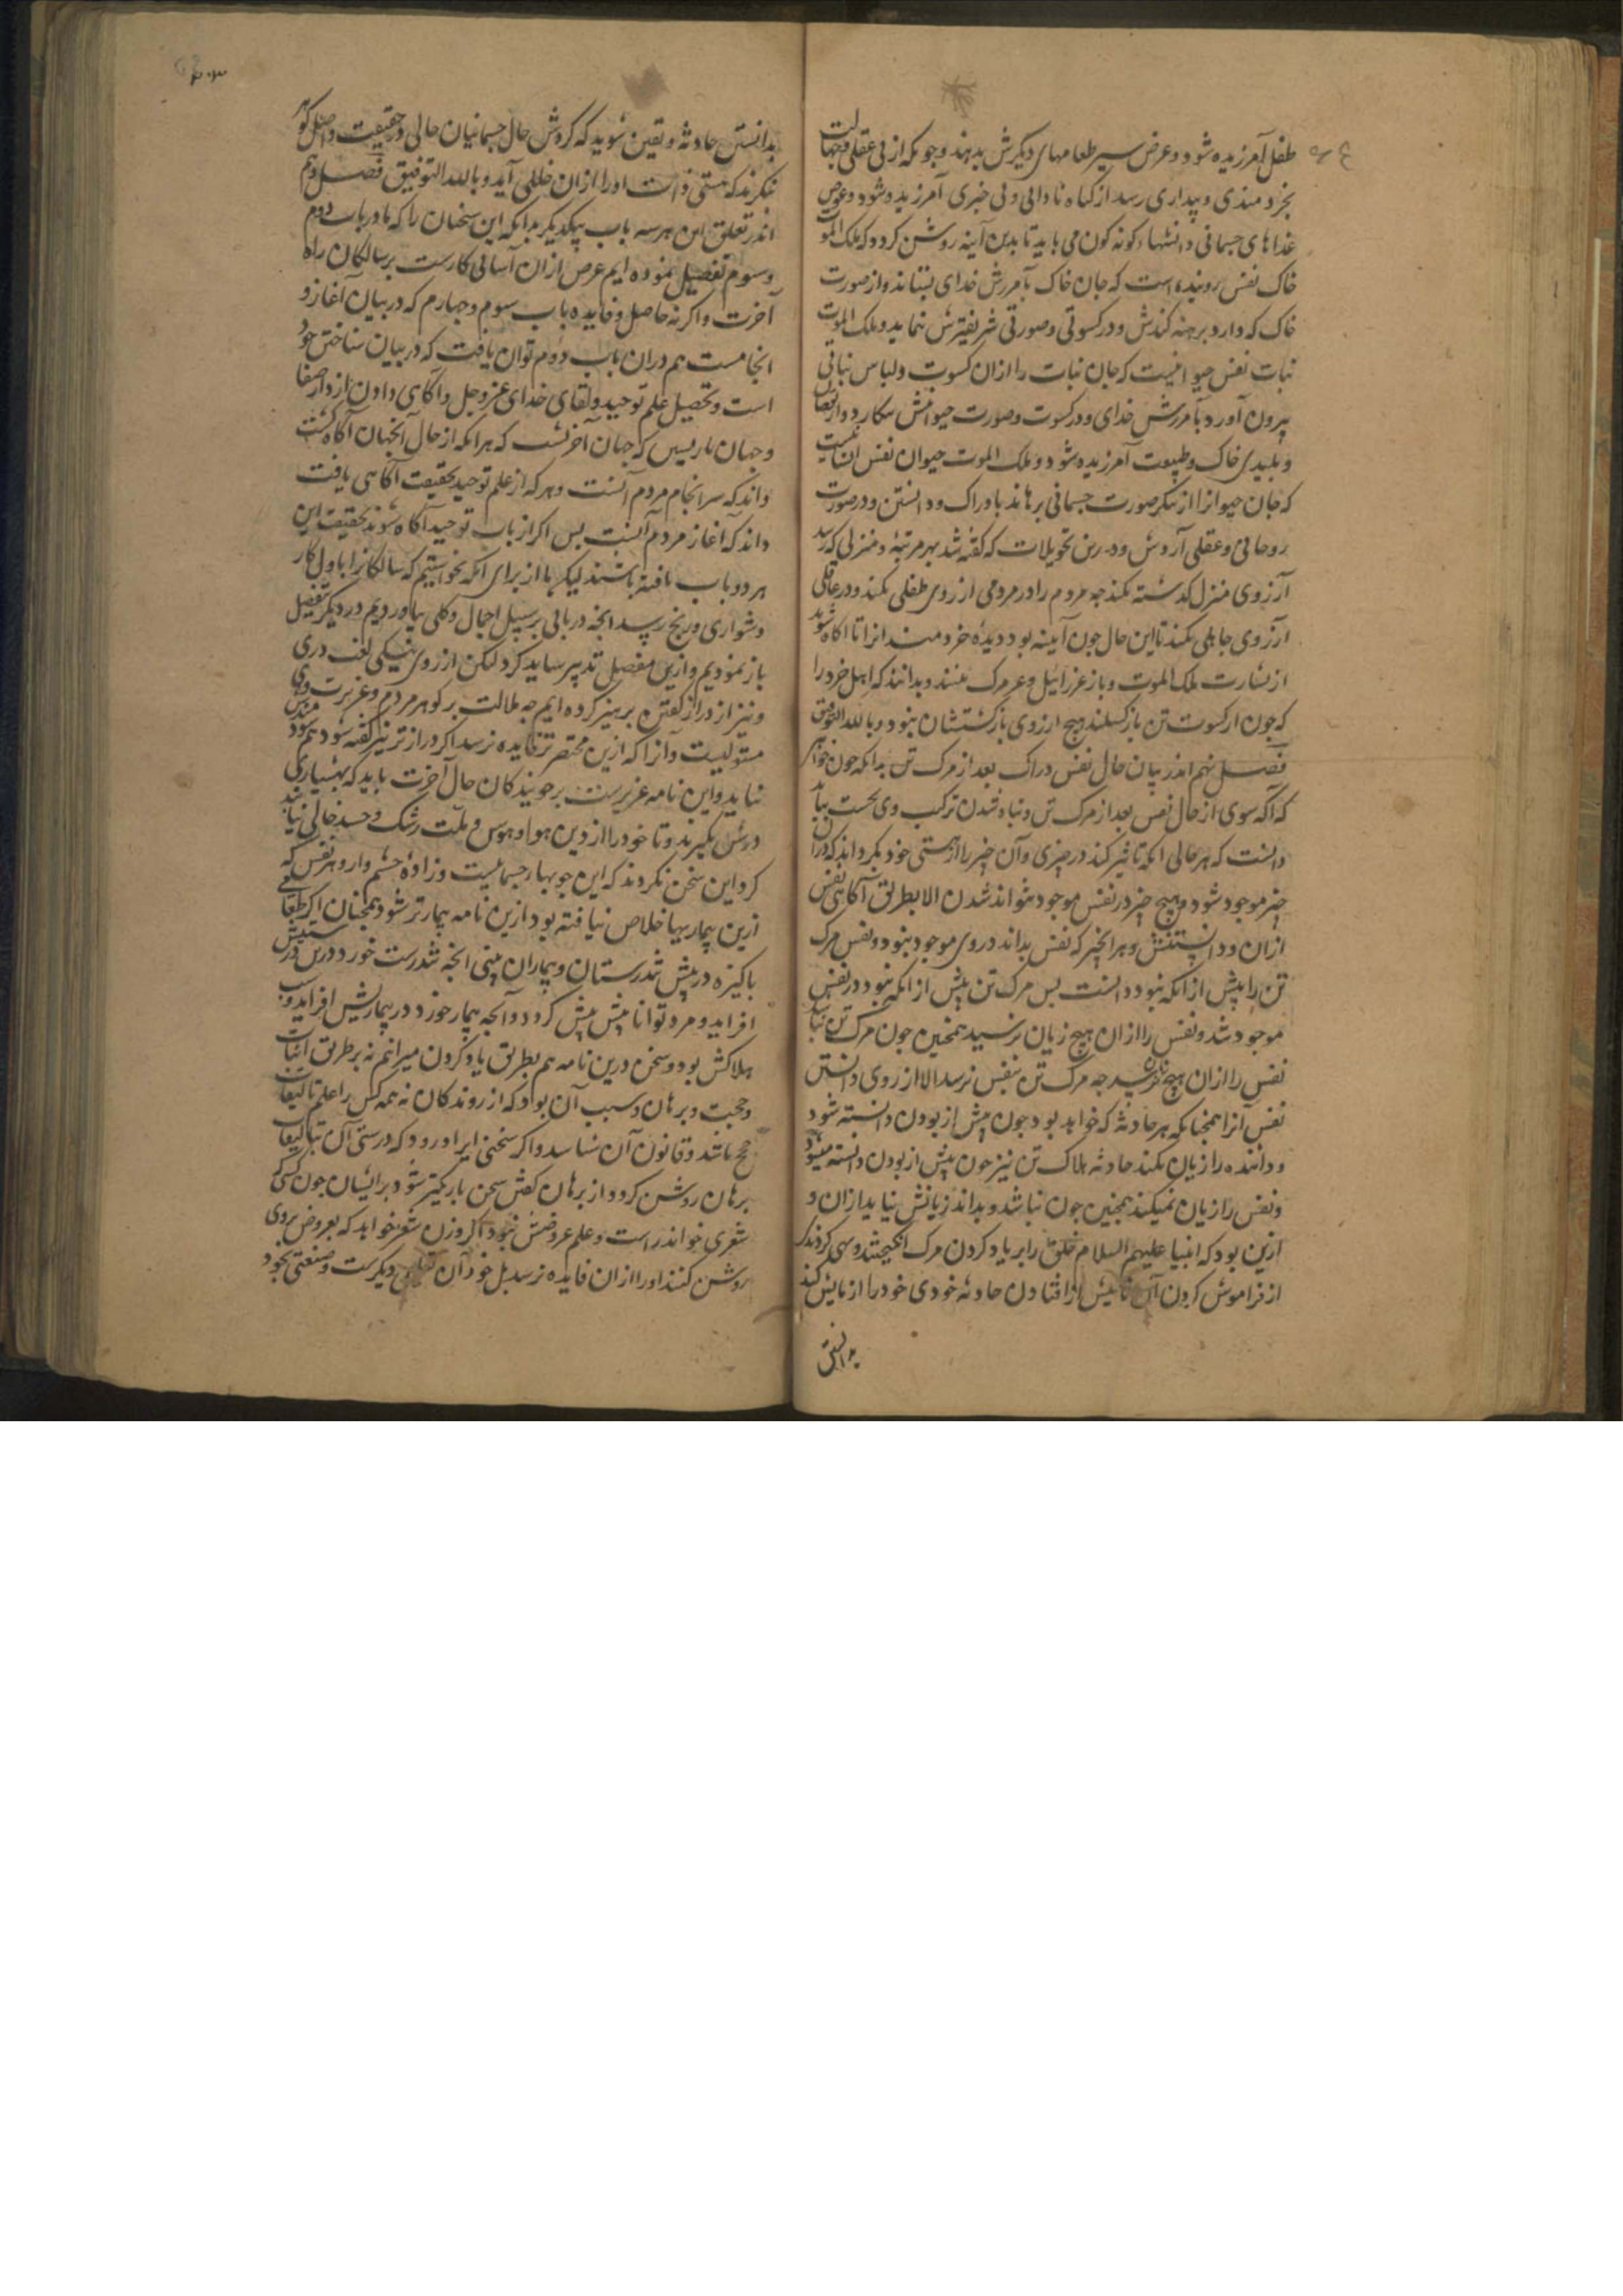 طفل آمرزیده شود و عوض سیر طعامهای دیگرش بدهند و چونکه از بی عقلی و جهالت
بخردمندی و بیداری رسد از گناه نادانی و بی خبری آمرزیده شود و عوض
غذاهای جسمانی دانشهاء گونه گون می یابد تا بدین آینه روشن گردد که ملک الموت
خاک نفس روینده است که جان خاک بآمرزش خدای بستاند و از صورت
خاک که دارد برهنه کندش و در کسوتی و صورتی شریفترش نماید و ملک الموت
نبات نفس حیوانیست که جان نبات را ازان کسوت و لباس نباتی
بیرون آورد بآمرزش خدای و در کسوت و صورت حیوانیش و از نقصان
و پلیدی خاک و طبیعت آمرزیده شود و ملک الموت حیوان نفس انسانیست
که جان حیوانرا از پیکر صورت جسمانی برهاند بادراک و دانستن و در صورت
روحانی و عقلی آردش و درین تحویلات که گفته شد بهر مرتبه و منزلی که رسد
آرزوی منزل گذشته نکند چه مردم را در مردمی آرزوی طفلی نکند و در عاقلی
آرزوی جاهلی نکند تا این حال چون آیینه بود دیده خردمند انرا تا آگاه شوند
از بشارت ملک الموت و باز عزراییل و مرگ بینند و بدانند که اهل خرد را
که چون از کسوت تن باز گسلند هیچ آرزوی بازگشتشان نبود و بالله التوفیق
فصل نهم اندر بیان حال نفس دراک بعد از مرگ تن بدانکه چون خواهی
که آگه شوی از حال نفس بعد از مرگ تن و تباه شدن ترکیب وی نخست بباید
دانست که هر حالی انکه تاثیر کند در چیزی و آن چیز را از هستی خود بگرداند که دران
چیز موجود شود و هیچ چیز در نفس موجود نتواند شدن الا بطریق آگاهی نفس
ازان و دانستنش و هر انچیز که نفس بداند در وی موجود بود و نفس مرگ
تن را پیش از آنکه بود دانست پس مرگ تن پیش از آنکه بود در نفس
موجود شد و نفس را ازان هیچ زیان نرسید همچنین چون مرگ تن بباید
نفس را ازان هیچ نرسد چه مرگ تن بنفس نرسد الا از روی دانستن
نفس آنرا همچنانکه هر حادثه که خواهد بود چون پیش از بودن دانسته شود
و داننده را زیان نکند حادثه هلاک تن نیز چون پیش از بودن دانسته میشود
و نفس را زیان نمیکند همچنین چون نباشد و بداند زیانش نیاید ازان و
ازین بود که انبیا علیهم السلام خلق را بر یاد کردن مرگ انگیختند و سعی کردند
از فراموش کردن آن تا پیش از افتادن حادثه خودی خود را از مایش کنند
بدانستن
۲۰۳
بدانستن حادثه و یقین شوید که گردش حال جسمانیان حالی و حقیقت و اصل گوهر
نگرند که هستی ذات او را ازان خللی آید و بالله التوفیق فصل دهم
اندر تعلق این هر سه باب بیکدیگر بدانکه این سخنان را که ما در باب دوم
و سوم تفصیل نموده ایم غرض ازان آسانی کارست بر سالکان راه
آخرت و اگر نه حاصل و فایده باب سوم و چهارم که در بیان آغاز و
انجامست هم دران باب دوم توان یافت که در بیان شناختن خود
است و تحصیل علم توحید و لقای خدای عز و جل و آگاهی دادن از
و جهان باز پسین که جهان آخرتست که هر انکه از حال آنجهان آگاه گشت
داند که سرانجام مردم آنست و هر که از علم توحید بحقیقت آگاهی یافت
داند که آغاز مردم آنست پس اگر از باب توحید آگاه شوند بحقیقت این
هر دو باب یافته باشند لیک ما از برای آنکه نخواستیم که سالکانرا باول کار
دشواری و رنج رسد انچه در بابی بر سبیل اجمال و کلی بیاوردیم در دیگر بتفصیل
باز نمودیم و ازین مفصل تر نیز شاید کرد لیکن از روی نیکی لغت دری
و نیز از دراز گفتن پرهیز کرده ایم چه ملالت بر گوهر مردم و غریزت وی
مستولیست و آنرا که ازین مختصرتر فایده نرسد اگر درازتر نیز گفته شود هم سود
نیاید و این نامه عزیزست بر جویندگان حال آخرت باید که بهشیاری
درش نگیرند و تا خود را از دین هوا و هوس و ملت رشک و حسد خالی نیابند
گرد این سخن نگردند که این جو بیمار جسمانیست و زاده خشم و آز و هر نفس که
ازین بیماریها خلاص نیافته بود ازین نامه بیمارتر شود همچنان اگر طعامی
پاکیزه در پیش تندرستان و بیماران بنهی انچه تندرست خورد در تندرستیش
افزاید و مرد توانا بیش بیش گردد و آنچه بیمار خورد در بیماریش افزاید و سبب
هلاکش بود و سخن درین نامه هم بطریق یاد کردن میرانم نه بر طریق اثبات
و حجت و برهان و سبب آن بود که از روندگان نه همه کس را علم تالیفات
حجج باشد و قانون آن شناسد و اگر سخنی ایراد رود که درستی آن بتالیفات
برهان روشن گردد از برهان گفتن سخن باریکتر شود بر ایشان چون کسی
شعری خواند راست و علم عروضش نبود اگر وزن شعر خواهد که بعروض بروی
روشن کنند او را ازان فایده نرسد بل خود آن دیگرست و صنعتی بخود